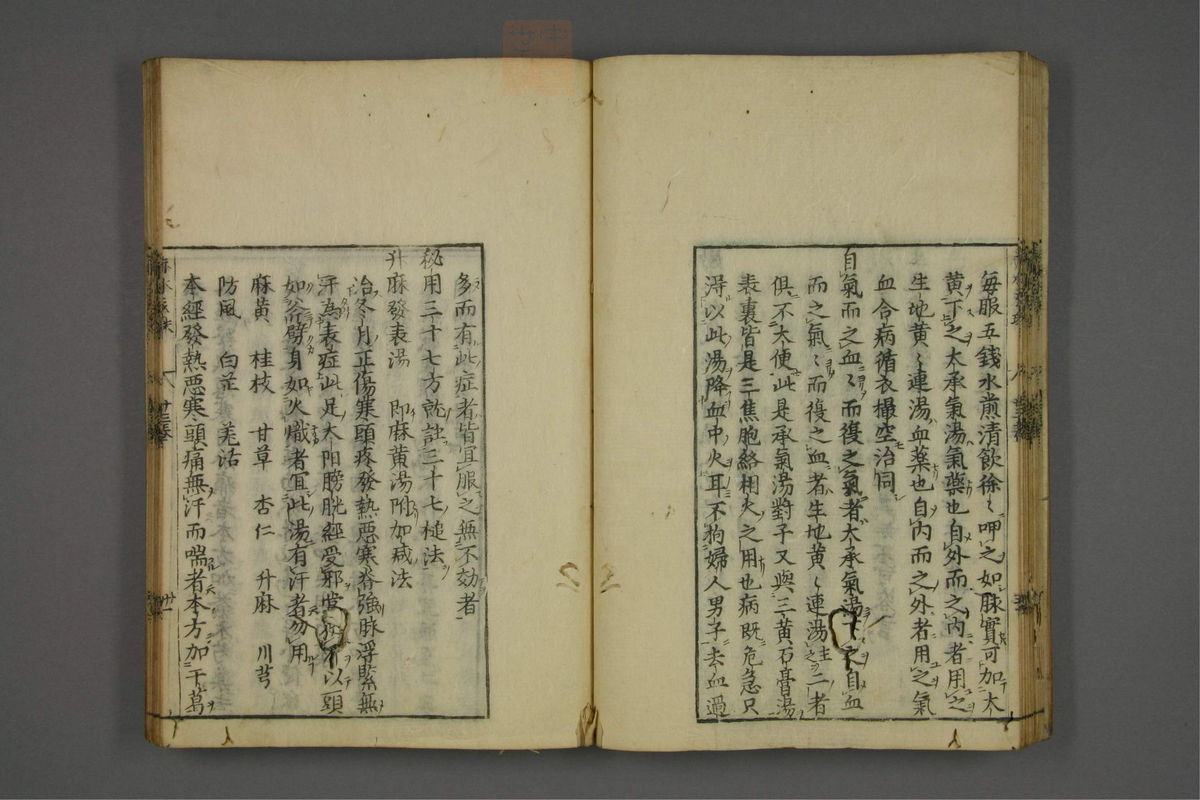 毎服五錢水煎清飲徐〻呷之如脉實可加大
黄下之大承氣湯氣藥也自外而之内者用之
生地黄〻連湯血藥也自内而之外者用之氣
血合病循衣撮空治同
自氣而之血〻而復之氣者大承氣湯下之自血
而之氣〻而復之血者生地黄〻連湯主之二者
俱不大便此是承氣湯對子又與三黄石膏湯
表裏皆是三焦胞絡相火之用也病既危急只
淂以此湯降血中火耳不拘婦人男子去血過
多而有此症者皆宜服之無不効者
秘用三十七方就註三十七槌法
升麻發表湯 即麻黄湯附加减法
治冬月正傷寒頭疼發熱惡寒脊強脉浮緊無
汗為表症此足太阳膀胱經受邪當 以頭
如斧劈身如火熾者宜此湯有汗者勿用
麻黄 桂枝 甘草 杏仁 升麻 川芎
防風 白芷 羌活
本經發熱惡寒頭痛無汗而喘者本方加干葛